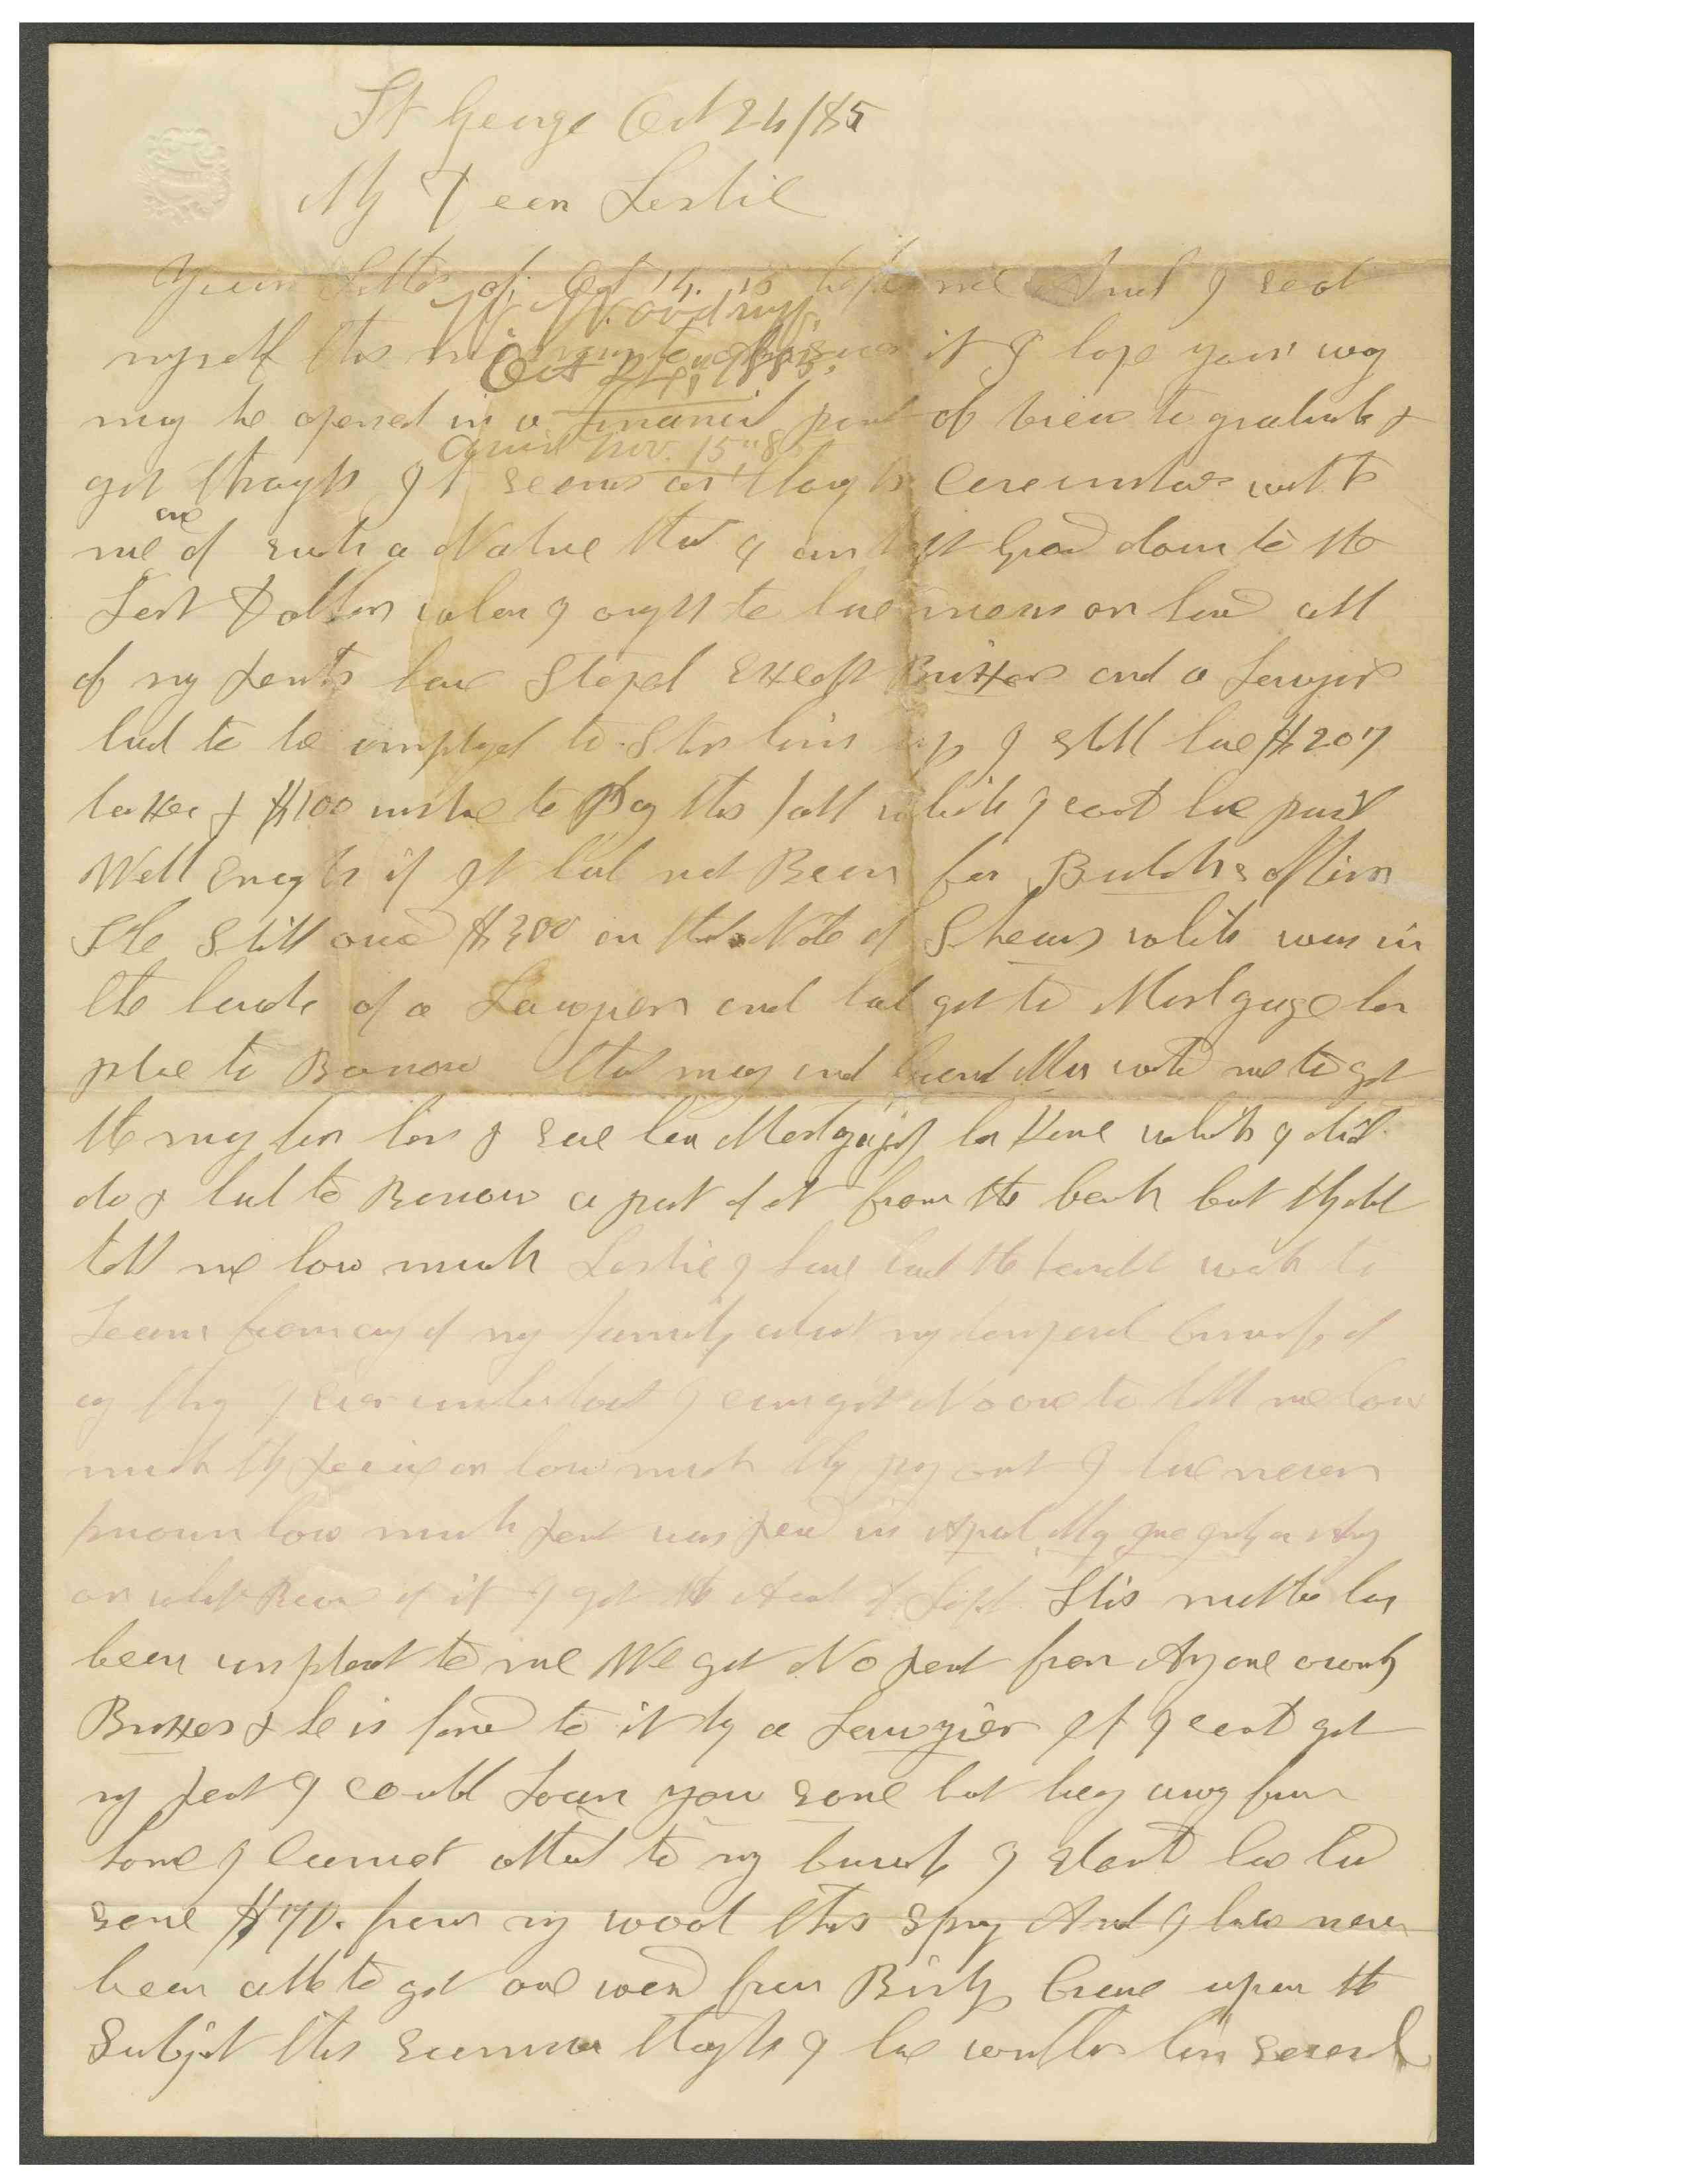 St George Oct 24/85
My Dear Leslie
Your Letter of Oct 14. is before me And I seat
W. Woodruff
myself this to answer it I hope your way
Oct 24, 1885.
may be opened in a financil point of view to graduate &
Nov. 15"
get through It seems as though Circumstances with
are
me of such a Nature that I am kept down to the
Last Dollar when I ought to have means on hand all
of my Rents have Stoped Except Britten and a Lawyer
had to be employed to Stir him up I still have $207
taxes & $100 to Pay this fall which I could have paid
Well Enough if It had not Been for
She Still owed $200 on that Note of which was in
the hands of a Lawyer and had got to Mortgage her
place to Borrow that and wanted me to get
the for her & save her Mortgaging her Home which I did
do & had to Borrow a part of it from the bank but they did
tell me how much Leslie I have had the hardest work to
Learn from any of my family about my temporal business of
any thing I ever undertook I can get No one to tell me how
much they receive or how much they pay out I have never
known how much Rent was paid in April, May, June July or Aug
or what Became of it I got the Acct of Sept This matter has
been unpleasant to me We get No Rent from Anyone ownly
Britten & he is forced to it by a Lawyier If I could get
my Rent I could Loan you some but being away from
home I Cannot attend to my business I should have had
some $70. from my wood this Spring And I have never
been able to get one word from Bishop upon the
Subject this Summer though I have written him several